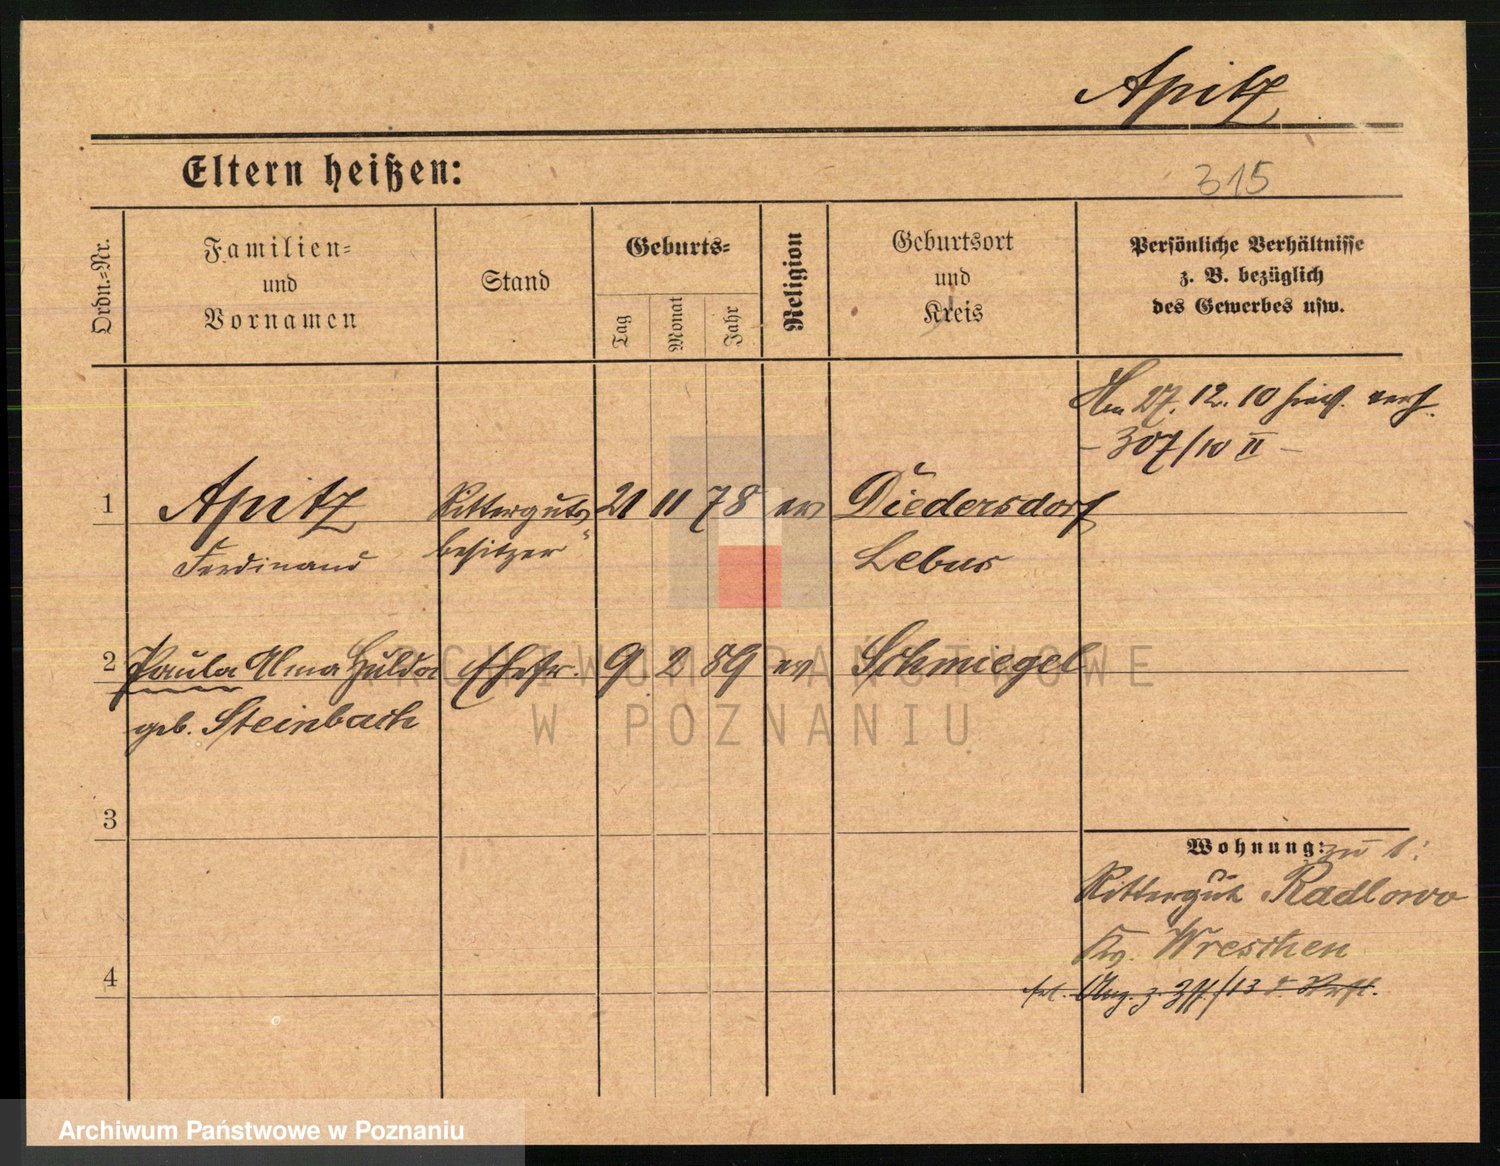 Apitz
Eltern heißen:
315
Ordn.-Nr.
Familien-
und
Vornamen
Stand
Geburts-
Tag
Monat
Jahr
Religion
Geburtsort
und
Kreis
Persönliche Verhältnisse
z. B. bezüglich
des Gewerbes usw.
27. 12. 10 verh.
- 307/10 II -
1
Apitz
Ferdinand
Ritterguts
besitzer
21 11 78 ev
Diedersdorf
Lebus
2
Paula Alma Hulda
geb. Steinbach
Ehefr.
9 2 89 ev
Schmiegel
3
4
Wohnung: zu 1:
Rittergut Radlowo
Kr. Wreschen
ARCHIWUM PAŃSTWOWE
W POZNANIU
Archiwum Państwowe w Poznaniu